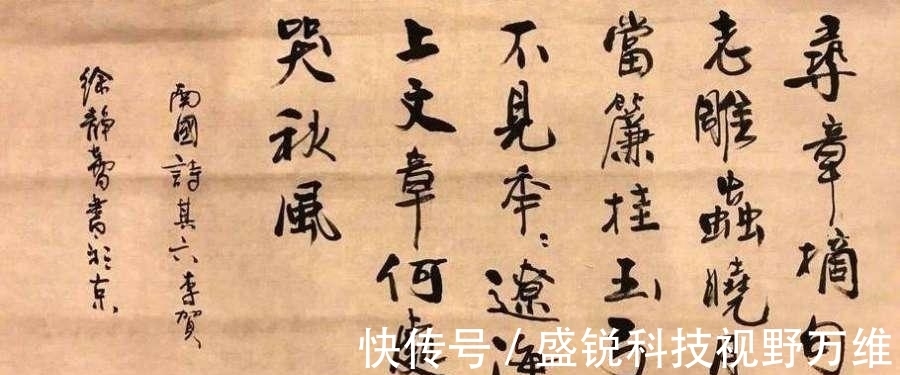 尋章摘句
老雕蟲曉月
當簾挂玉弓
不見年〻遼海
上文章何處
哭秋風
南國詩其六李賀
徐靜蕾書於京
快传号 / 盛锐科技视野万维